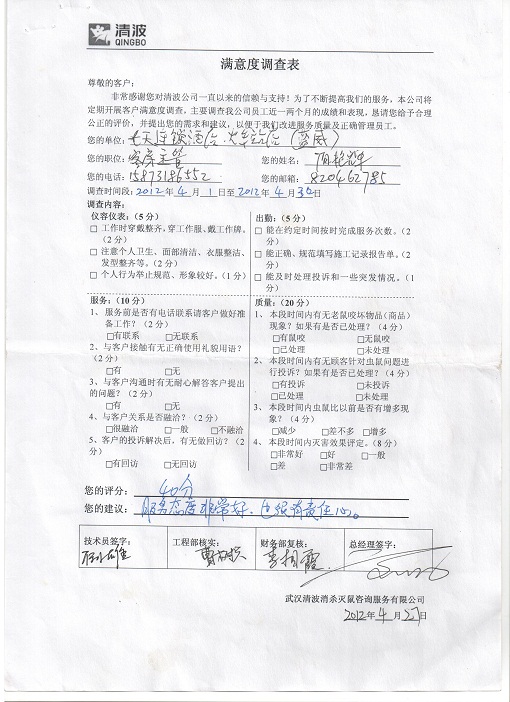 清波
QINGBO
满意度调查表
尊敬的客户：
非常感谢您对清波公司一直以来的信赖与支持！为了不断提高我们的服务，本公司将
定期开展客户满意度调查，主要调查我公司员工近一两个月的成绩和表现，恳请您给予合理
公正的评价，并提出您的需求和建议，以便于我们改进服务质量及正确管理员工。
您的单位：七天连锁酒店·火车站店（盈威）
您的职位：客房主管 您的姓名：
您的电话：15873186552 您的邮箱：820462785
调查时间段：2012年4月1日至2012年4月30日
调查内容：
仪容仪表：（5分）
□ 工作时穿戴整齐，穿工作服、戴工作牌。
（2分）
□ 注意个人卫生、面部清洁、衣服整洁、
发型整齐等。（2分）
□ 个人行为举止规范、形象较好。（1分）
出勤：（5分）
□ 能在约定时间按时完成服务次数。（2
分）
□ 能正确、规范填写施工记录报告单。（2
分）
□ 能及时处理投诉和一些突发情况。（1
分）
服务：（10分）
1、服务前是否有电话联系请客户做好准
备工作？（2分）
□有联系 □无联系
2、与客户接触有无正确使用礼貌用语？
（2分）
□有 □无
3、与客户沟通时有无耐心解答客户提出
的问题？（2分）
□有 □无
4、与客户关系是否融洽？（2分）
□很融洽 □一般 □不融洽
5、客户的投诉解决后，有无做回访？（2
分）
□有回访 □无回访
质量：（20分）
1、本段时间内有无老鼠咬坏物品（商品）
现象？如果有是否已处理？（4分）
□有鼠咬 □无鼠咬
□已处理 □未处理
2、本段时间内有无顾客针对虫鼠问题进
行投诉？如果有是否已处理？（4分）
□有投诉 □未投诉
□已处理 □未处理
3、本段时间内虫鼠比以前是否有增多现
象？（4分）
□减少 □差不多 □增多
4、本段时间内灭害效果评定。（8分）
□非常好 □好 □一般
□差 □非常差
您的评分：40分
您的建议：服务态度非常好，也很有责任心。
技术员签字： 工程部核实： 财务部复核：李相霞 总经理签字：
武汉清波消杀灭鼠咨询服务有限公司
2012年4月27日